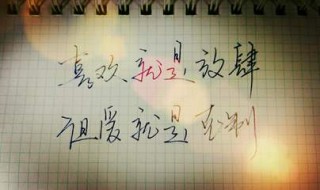 喜欢就是放肆
但爱就是克制